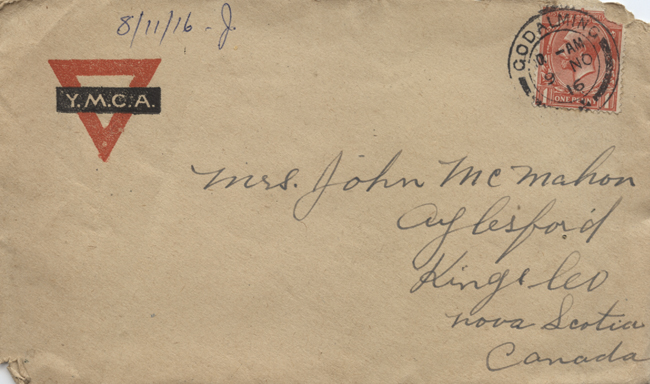 8/11/16 - J
Y.M.C.A.
GODALMING
-AM
9 NO
16
ONE PENNY
Mrs. John McMahon
Aylesford
Kings Co
Nova Scotia
Canada